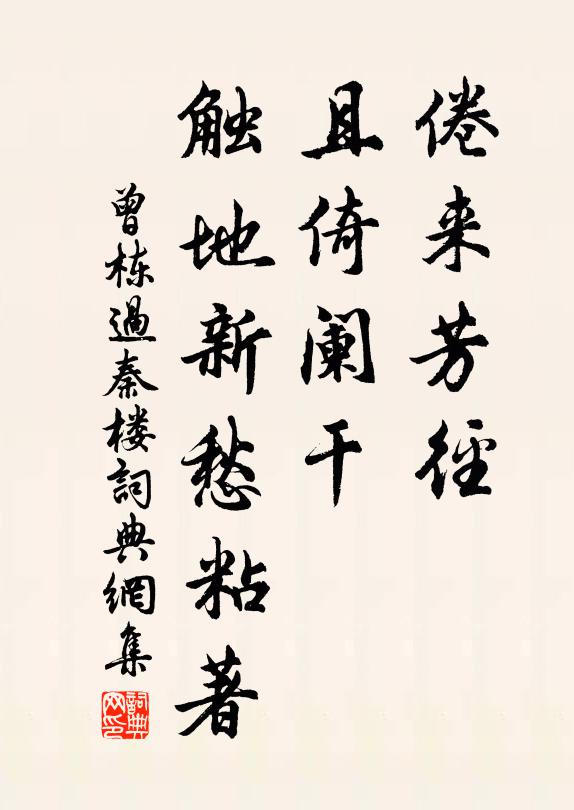 倦来芳径
且倚阑干
触地新愁粘著
曾栋過秦楼詞典網集
詞典
网印